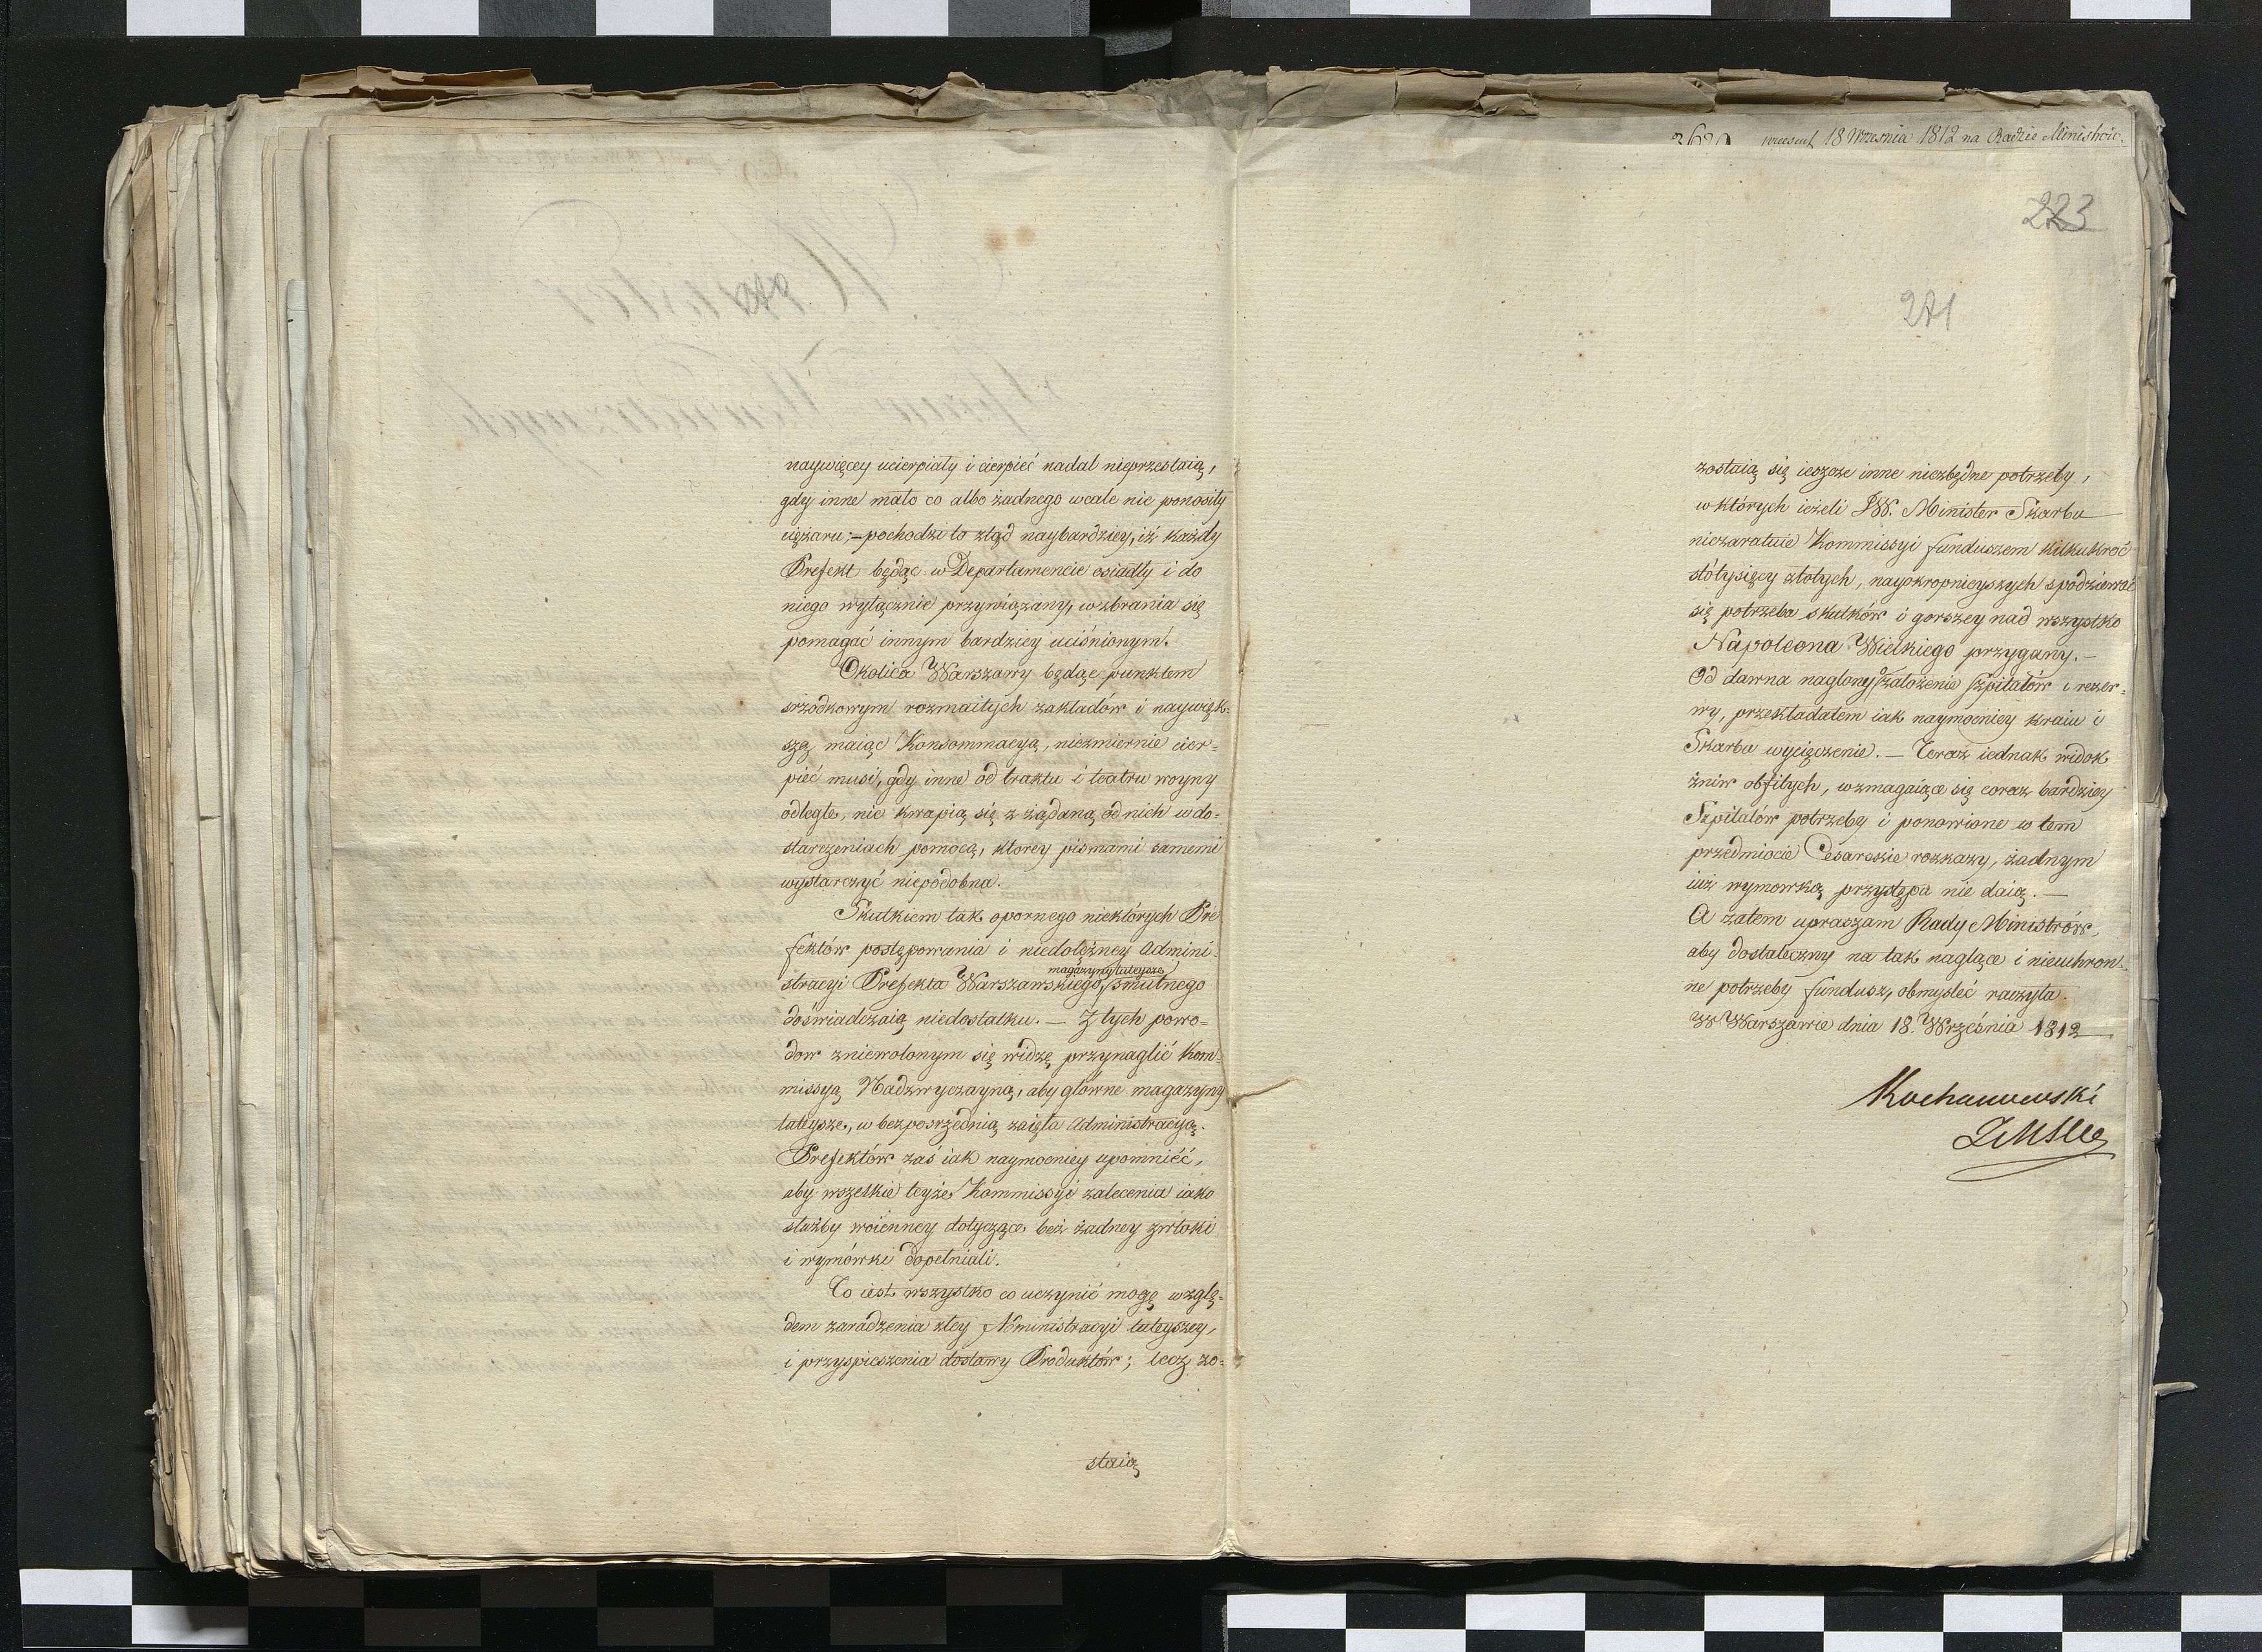 naywięcey ucierpiały i cierpieć nadal nieprzestaią,
gdy inne mało co albo żadnego wcale nie ponosiły
ciężaru; – pochodzi to ztąd naybardziey, iż każdy
Prefekt będąc w Departamencie osiadły i do
niego wyłącznie przywiązany, wzbrania się
pomagać innym bardziey uciśnionym.
Okolica Warszawy będąc punktem
srzodkowym rozmaitych zakładów i naywięk-
szą maiąc Konsommacyą, niezmiernie cier-
pieć musi, gdy inne od traktu i teatru woyny
odległe, nie kwapią się z żądaną od nich w do-
starczeniach pomocą, ktorey pismami samemi
wystarczyć niepodobna.
Skutkiem tak opornego niektórych Pre
fektów postępowania i niedołężney Admini-
magazyny tuteysze
stracyi Prefekta Warszawskiego, smutnego
doświadczaią niedostatku. – Z tych powo-
dow zniewolonym się widzę przynaglić Kom-
missyą Nadzwyczayną, aby główne magazyny
tuteysze, w bezposrzednią zaięła Administracyą.
Prefektów zaś iak naymocniey upomnieć,
aby wszelkie teyże Kommissyi zalecenia iako
służby woienney dotyczące bez żadney zwłoki
i wymówki dopełniali.
To iest wszystko co uczynić mogę wzglę-
dem zaradzenia złey Administracyi tuteyszey,
i przyspieszenia dostawy Produktów; lecz zo-
staią
18 Września 1812 na Radzie Ministrów.
223
271
zostaią się ieszcze inne niezbędne potrzeby,
w których ieżeli JW. Minister Skarbu
niezaratuie Kommissyi funduszem kilkukroć
stótysięcy złotych, nayokropnieyszych spodziewać
się potrzeba skutków i gorszey nad wszystko
Napoleona Wielkiego przygany. –
Od dawna naglony o założenie szpitalów i rezer-
wy, przekładałem iak naymocniey kraiu i
Skarbu wycięczenie. – Teraz iednak widok
żniw obfitych, wzmagaiące się coraz bardziey
Szpitalów potrzeby i ponowione w tem
przedmiocie Cesarskie rozkazy, żadnym
iuż wymowką przystępu nie daią. –
A zatem upraszam Rady Ministrów,
aby dostateczny na tak naglące i nieuchron-
ne potrzeby fundusz, obmysleć raczyła.
W Warszawie dnia 18. Września 1812
Kochanowski